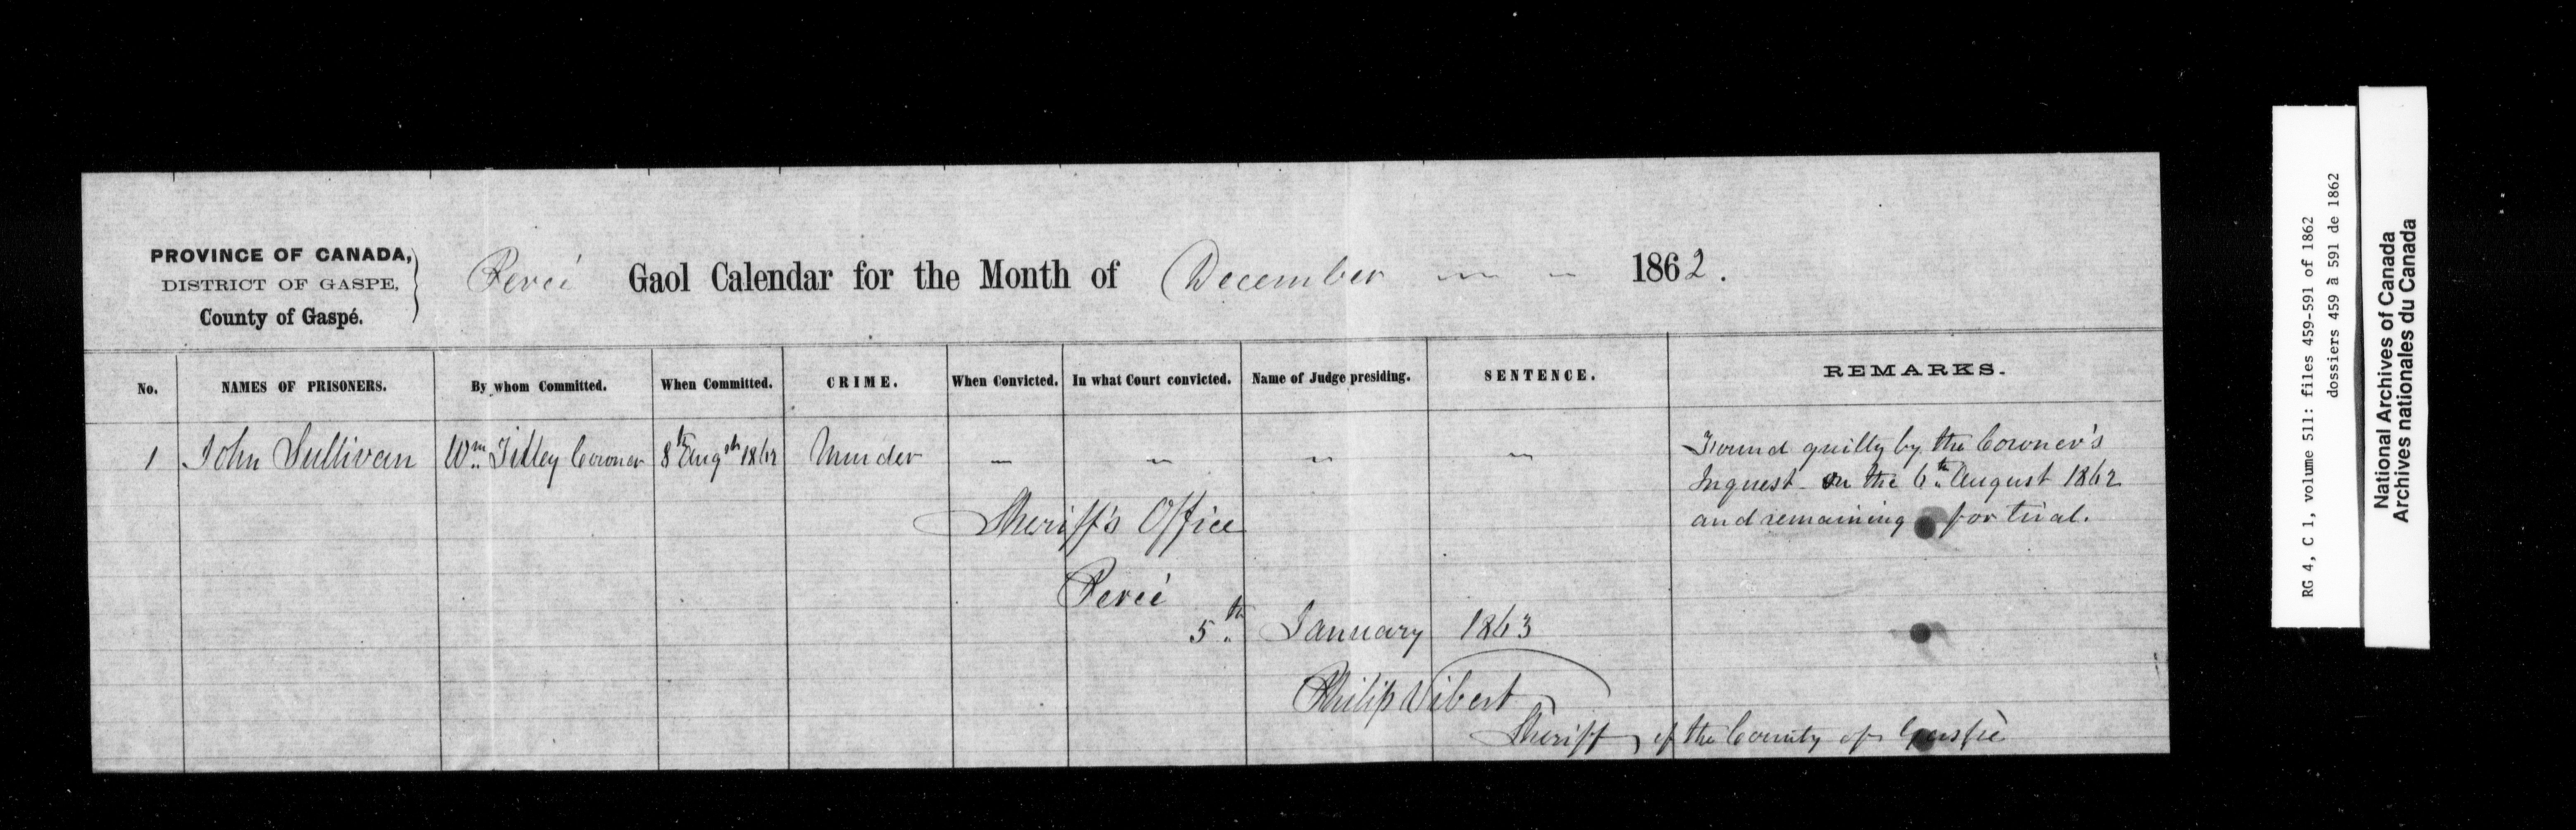 PROVINCE OF CANADA,
DISTRICT OF GASPE,
County of Gaspé.
Percé Gaol Calendar for the Month of December 1862.
No. NAMES OF PRISONERS. By whom Committed. When Committed. CRIME. When Convicted. In what Court convicted. Name of Judge presiding. SENTENCE. REMARKS.
1 John Sullivan Wm. Tilley Coroner 8th Augst 1862 Murder — — — — Found guilty by the Coroner's
Inquest on the 6th August 1862
and remaining for trial.
Sheriff's Office
Percé
5th January 1863
Philip Vibert
Sheriff of the County of Gaspé
RG 4, C 1, volume 511: files 459-591 of 1862
dossiers 459 à 591 de 1862
National Archives of Canada
Archives nationales du Canada